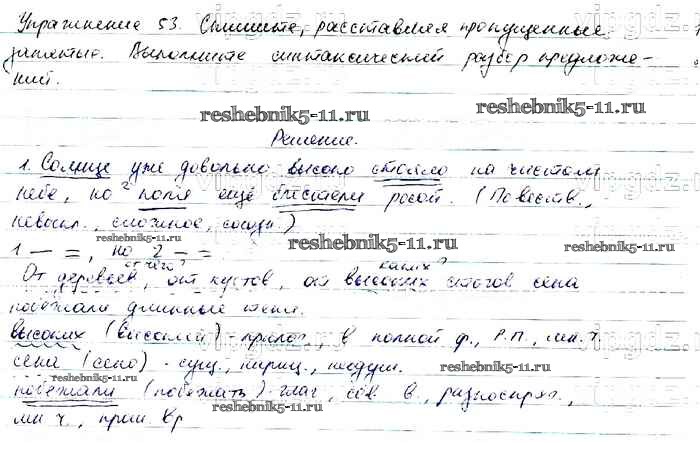 Упражнение 53. Спишите, расставляя пропущенные
запятые. Выполните синтаксический разбор предложе-
ний.
vipgdz.ru
reshebnik5-11.ru
Решение.
1. Солнце уже довольно высоко стояло на чистом
небе, но ² поля ещё блестели росой. (Повеств.,
невоскл., сложное, союзн.)
reshebnik5-11.ru reshebnik5-11.ru reshebnik5-11.ru
1 — =, но 2 — =.
от чего? каких?
От деревьев, от кустов, от высоких стогов сена
побежали длинные тени.
высоких (высокий) - прилаг., в полной ф., Р.П., мн.ч.
сена (сено) - сущ., нариц., неодуш.
reshebnik5-11.ru
reshebnik5-11.ru
побежали (побежать) - глаг., сов. в., разноспряг.,
reshebnik5-11.ru
мн.ч., прош. вр